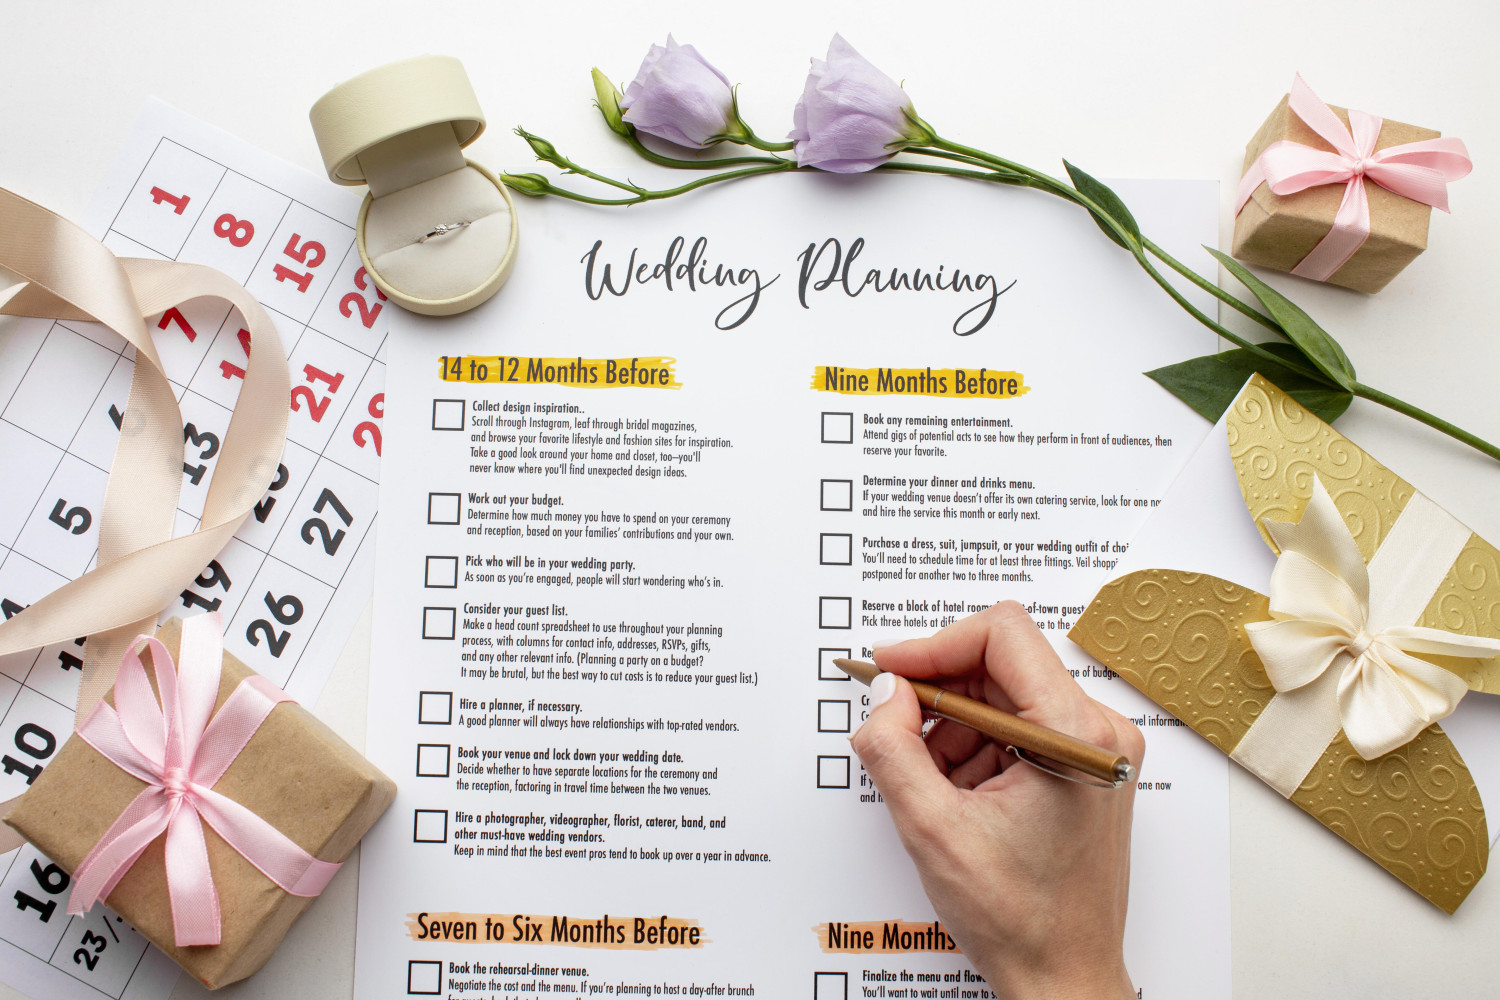 Wedding Planning
14 to 12 Months Before
Collect design inspiration..
Scroll through Instagram, leaf through bridal magazines,
and browse your favorite lifestyle and fashion sites for inspiration.
Take a good look around your home and closet, too—you'll
never know where you'll find unexpected design ideas.
Work out your budget.
Determine how much money you have to spend on your ceremony
and reception, based on your families' contributions and your own.
Pick who will be in your wedding party.
As soon as you're engaged, people will start wondering who's in.
Consider your guest list.
Make a head count spreadsheet to use throughout your planning
process, with columns for contact info, addresses, RSVPs, gifts,
and any other relevant info. (Planning a party on a budget?
It may be brutal, but the best way to cut costs is to reduce your guest list.)
Hire a planner, if necessary.
A good planner will always have relationships with top-rated vendors.
Book your venue and lock down your wedding date.
Decide whether to have separate locations for the ceremony and
the reception, factoring in travel time between the two venues.
Hire a photographer, videographer, florist, caterer, band, and
other must-have wedding vendors.
Keep in mind that the best event pros tend to book up over a year in advance.
Seven to Six Months Before
Book the rehearsal-dinner venue.
Negotiate the cost and the menu. If you're planning to host a day-after brunch
Nine Months Before
Book any remaining entertainment.
Attend gigs of potential acts to see how they perform in front of audiences, then
reserve your favorite.
Determine your dinner and drinks menu.
If your wedding venue doesn't offer its own catering service, look for one
and hire the service this month or early next.
Purchase a dress, suit, jumpsuit, or your wedding outfit of
You'll need to schedule time for at least three fittings. Veil
postponed for another two to three months.
Reserve a block of hotel
Pick three hotels at
to the
of
If
and
one now
Nine Months
Finalize the menu and
You'll want to wait until now to
1
8
15
7
21
13
5
27
19
26
10
16
23/